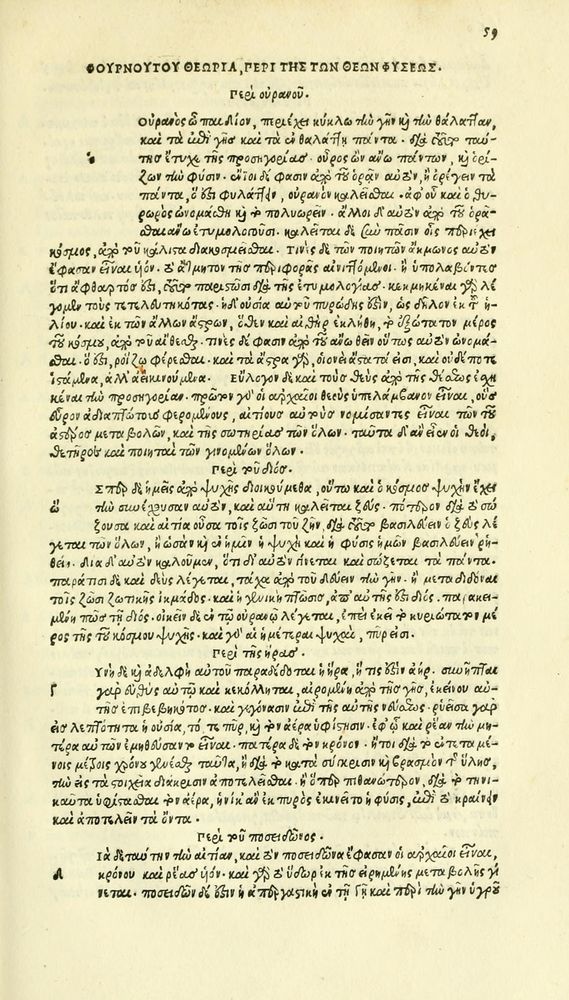 59
ΦΟΥΡΝΟΥΤΟΥ ΘΕΩΡΙΑ, ΠΕΡΙ ΤΗΣ ΤΩΝ ΘΕΩΝ ΦΥΣΕΩΣ.
Περὶ οὐρανοῦ.
Οὐρανὸς ὦ παιδίον, περιέχει κύκλω τὴν γῆν καὶ τὴν θάλατταν,
καὶ τὰ ἐπὶ γῆς καὶ τὰ ἐν θαλάττη πάντα. διὰ τοῦτο ταύ-
της ἔτυχε τῆς προσηγορίας. οὖρος ὢν ἄνω πάντων, καὶ ὁρί-
ζων τὴν φύσιν. ἔνιοι δέ φασιν ἀπὸ τοῦ ὁρᾶν αὐτὸν, ἢ ὠρεύειν τὰ
πάντα, ὅ ἐστι φυλάττειν, οὐρανὸν καλεῖσθαι. ἀφ' οὗ καὶ ὁ θυ-
ρωρὸς ὠνομάσθη καὶ τὸ πολυωρεῖν. ἄλλοι δ' αὐτὸν ἀπὸ τοῦ ὁρᾶ-
σθαι ἄνω ἐτυμολογοῦσι. καλεῖται δὲ σὺν πᾶσιν οἷς περιέχει
κόσμος, ἀπὸ τοῦ κάλιστα διακοσμεῖσθαι. Τινὲς δὲ τῶν ποιητῶν ἄκμωνος αὐτὸν
ἔφασαν εἶναι υἱόν. τὸ ἄκμητον τῆς περιφορᾶς αἰνιττόμενοι. ἢ ὑπολαβόντες
ὅτι ἄφθαρτός ἐστι, τοῦτο παριστῶσι διὰ τῆς ἐτυμολογίας. κεκμηκέναι γὰρ λέ
γομεν τοὺς τετελευτηκότας. ἡ δ' οὐσία αὐτοῦ πυρώδης ἐστὶν, ὡς δῆλον ἐκ τοῦ ἡ-
λίου. καὶ ἐκ τῶν ἄλλων ἄστρων, ὅθεν καὶ αἰθὴρ ἐκλήθη, τὸ ἐξώτατον μέρος
τοῦ κόσμου, ἀπὸ τοῦ αἴθεσθαι. τινὲς δέ φασιν ἀπὸ τοῦ ἄνω θεῖν οὕτως αὐτὸν ὠνομά-
σθαι. ὅ ἐστι, ῥοίζω φέρεσθαι. καὶ τὰ ἄστρα γὰρ, οἱονεὶ ἄστατά εἰσι, καὶ οὐδέποτε
ἱστάμενα, ἀλλ' ἀεικινούμενα. Εὔλογον δὲ καὶ τοὺς θεοὺς ἀπὸ τῆς θεύσεως ἐσχη
κέναι τὴν προσηγορίαν. πρῶτον γὰρ οἱ ἀρχαῖοι θεοὺς ὑπελάμβανον εἶναι, οὓς
εὗρον ἀδιαπτώτως φερομένους, αἰτίους αὐτοὺς νομίσαντες εἶναι τῶν τοῦ
ἀέρος μεταβολῶν, καὶ τῆς σωτηρίας τῶν ὅλων. ταῦτα δ' ἂν εἶεν οἱ θεοὶ,
θετῆρες καὶ ποιηταὶ τῶν γινομένων ὅλων.
Περὶ τοῦ διός.
Σπερ δὲ ἡμεῖς ἀπὸ ψυχῆς διοικούμεθα, οὕτω καὶ ὁ κόσμος ψυχὴν ἔχει
ὦ τὴν συνέχουσαν αὐτὸν, καὶ αὕτη καλεῖται ζεύς. πότερον διὰ τὸ σώ
ζουσα καὶ αἰτία οὖσα τοῖς ζῶσι τοῦ ζῆν, διὰ τοῦτο βασιλεύειν ὁ ζεὺς λέ
γεται τῶν ὅλων, ἢ ὡσὰν καὶ ἐν ἡμῖν ἡ ψυχὴ καὶ ἡ φύσις ἡμῶν βασιλεύειν ῥη-
θείη. δία δ' αὐτὸν καλοῦμεν, ὅτι δι' αὐτὸν γίνεται καὶ σώζεται τὰ πάντα.
παρά τισι δὲ καὶ δεὺς λέγεται, τάχα ἀπὸ τοῦ δεύειν τὴν γῆν. ἢ μεταδιδόναι
τοῖς ζῶσι ζωτικῆς ἰκμάδος. καὶ ἡ γενικὴ πτῶσις, ἀπ' αὐτῆς ἐστὶ διός. παρακει-
μένη πως τῆ διός. οἰκεῖν δὲ ἐν τῷ οὐρανῷ λέγεται, ἐπεὶ ἐκεῖ τὸ κυριώτατον μέ
ρος τῆς τοῦ κόσμου ψυχῆς. καὶ γὰρ αἱ ἡμέτεραι ψυχαὶ, πῦρ εἰσι.
Περὶ τῆς ἥρας.
Υνὴ δὲ καὶ ἀδελφὴ αὐτοῦ παραδίδοται ἡ ἥρα, ἥ τις ἐστὶν ἀήρ. συνῆπται
Γ γὰρ εὐθὺς αὐτῷ καὶ κεκόλληται, αἰρομένη ἀπὸ τῆς γῆς, ἐκείνου αὐ-
τῆς ἐπιβεβηκότος. καὶ γεγόνασιν ἐπὶ τῆς αὐτῆς νεύσεως. ῥυεῖσα γὰρ
εἰς λεπτότητα ἡ οὐσία, τό τε πῦρ, καὶ τὸν ἀέρα ὑφίστησιν. ἐφ' ᾧ καὶ ῥέαν τὴν μη-
τέρα αὐτῶν ἐμυθεύσαντο εἶναι. πατέρα δὲ τὸν κρόνον. ἤτοι διὰ τὸ ἐν τεταμέ-
νοις μέτροις χρόνου γενέσθαι ταῦτα, ἢ διὰ τὸ κατὰ σύγκρισιν καὶ βρασμὸν τῆς ὕλης,
τὴν εἰς τὰ στοιχεῖα διάκρισιν ἀποτελεῖσθαι. ἢ ὅπερ πιθανώτερον, διὰ τὸ τηνι-
καῦτα ὑφίστασθαι τὸν ἀέρα, ἡνίκ' ἂν ἐκ πυρὸς ἐκινεῖτο ἡ φύσις, ἐπὶ τὸ κραίνειν
καὶ ἀποτελεῖν τὰ ὄντα.
Περὶ τοῦ ποσειδῶνος.
Ιὰ δὲ ταύτην τὴν αἰτίαν, καὶ τὸν ποσειδῶνα ἔφασαν οἱ ἀρχαῖοι εἶναι,
Δ κρόνου καὶ ῥέας υἱόν. καὶ γὰρ τὸ ὕδωρ ἐκ τῆς εἰρημένης μεταβολῆς γί
νεται. ποσειδῶν δέ ἐστιν ἡ ἀπεργαστικὴ ἐν τῇ γῇ καὶ περὶ τὴν γῆν ὑγροῦ